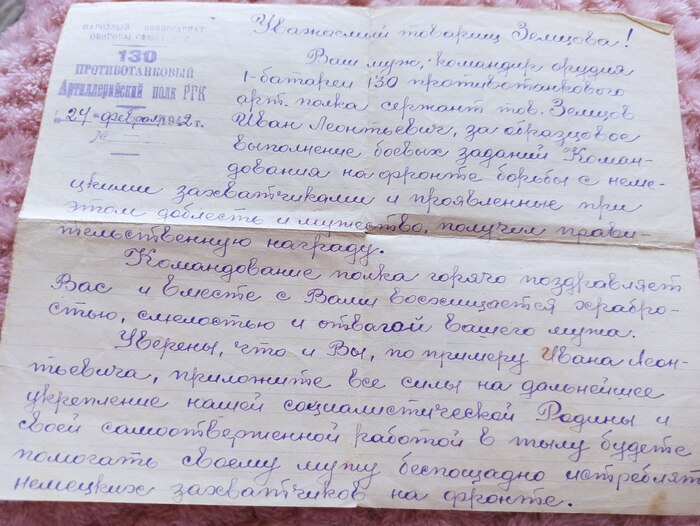 НАРОДНЫЙ КОМИССАРИАТ
ОБОРОНЫ СОЮЗА ССР
130
ПРОТИВОТАНКОВЫЙ
Артиллерийский полк РГК
24 февраля 1942 г.
№
Уважаемый товарищ Земцова!
Ваш муж, командир орудия
1-батареи 130 противотанкового
арт. полка сержант тов. Земцов
Иван Леонтьевич, за образцовое
выполнение боевых заданий Коман-
дования на фронте борьбы с неме-
цкими захватчиками и проявленные при
этом доблесть и мужество, получил прави-
тельственную награду.
Командование полка горячо поздравляет
Вас и вместе с Вами восхищается храбро-
стью, смелостью и отвагой Вашего мужа.
Уверены, что и Вы, по примеру Ивана Леон-
тьевича, приложите все силы на дальнейшее
укрепление нашей социалистической Родины и
своей самоотверженной работой в тылу будете
помогать своему мужу беспощадно истреблят
немецких захватчиков на фронте.